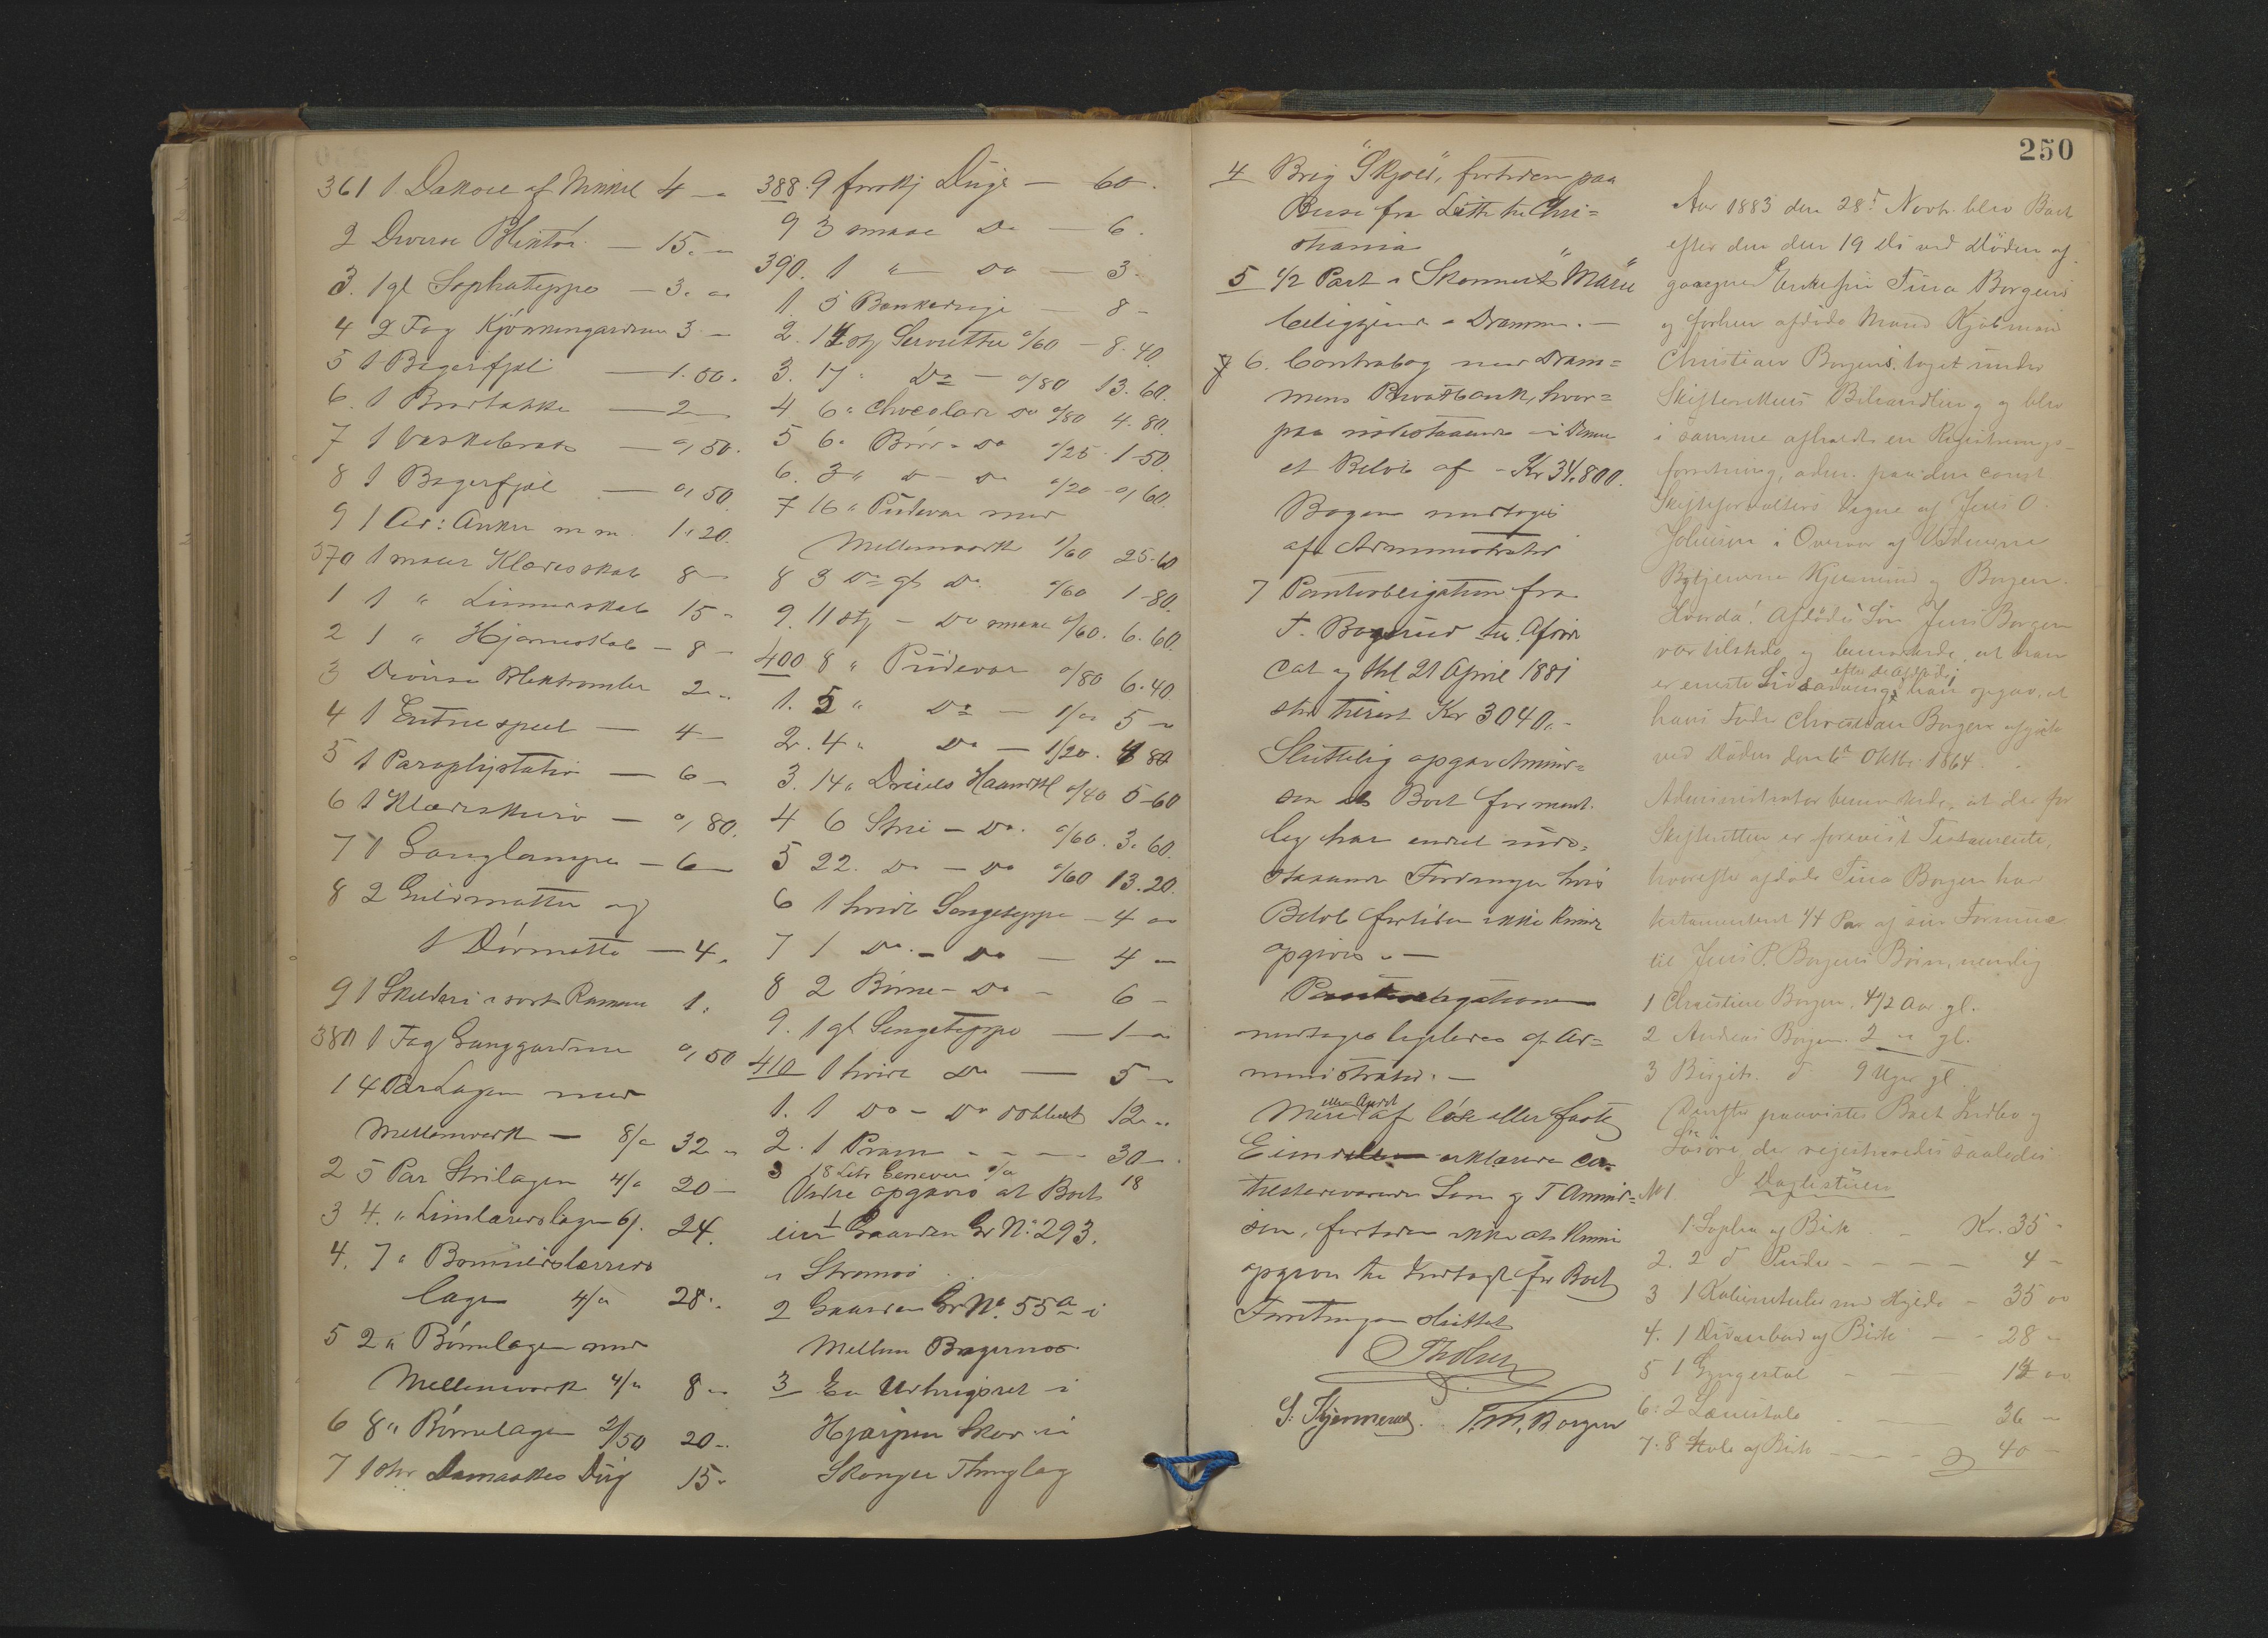 361 1 Dakore af Nikkel 4 -
2 Diverse Bliktøi - 15. -
3. 1 gl Sophateppe - 3. -
4 2 Fag Kjøkkengardiner 3 -
5 1 Bagerfjæl - 1. 50.
6. 1 Brødbakke - 2 -
7 1 Vaskebræt - 0, 50.
8 1 Bagerfjæl - 0, 50
9 1 Ad: Anker m m. 1. 20.
370 1 malet Klædesskab 8 -
1 1 " Linnedskab 15 -
2 1 " Hjørneskab - 8 -
3 Diverse Bliktromler 2 -
4 1 Entrespeil - 4 -
5 1 Paraplystativ - 6 -
6 1 Klædeskurv - 0, 80.
7 1 Ganglampe - 6 -
8 2 Gulvmatter og
1 Dørmatte - 4.
9 1 Skilderi i sort Ramme 1.
380 1 Fag Ganggardiner 0, 50
1 4 Par Lagen med
Mellemværk - 8/- 32 -
2 5 Par Strilagen 4/- 20 -
3 4. " Linlærredslagen 6/. 24.
4. 7 " Bomuldslærreds
lagen 4/- 28 -
5 2 " Børnelagen med
Mellemværk 4/- 8 -
6 8 " Børnelagen 2/50 20 -
7 1 stor Damaskes Dug 15 -
388. 9 forskj Duge - 60.
9 3 smaa Do - 6.
390. 1 " Do - 3.
1. 5 Bankeduge - 8 -
2. 14 stk Servietter 0/60 - 8. 40.
3. 17 " Do - 0/80 13. 60.
4 6 " Chocolade Do 0/80 4. 80.
5 6 " Børne Do 0/25 1. 50.
6. 3 " D - Do 0/20 - 0, 60.
7 16 " Pudevar med
Mellemværk 1/60 25. 60
8 3 Do gl Do 0/60 1. 80.
9. 11 stk - Do smaa 0/60. 6. 60.
400 8 " Pudevar 0/80 6. 40.
1. 5 " Do - 1/- 5 -
2. 4 " Do - 1/20. 4 80
3. 14 " Dreiels Haandkl 0/40 5. 60
4 6 Strie - Do. 0/60. 3. 60.
5 22. Do - Do 0/60 13. 20.
6 1 hvidt Sengeteppe - 4 -
7 1 Do. - Do - 4 -
8 2 Børne - Do - 6 -
9. 1 gl Sengeteppe - 1 -
410 1 hvidt Do - 5 -
1. 1 Do - Do dobbelt 12 -
2. 1 Pram - - - - 30 -
3 18 Liter Genever 1/- 18
Videre opgaves at Boet
eier 1 Gaarden Gr No 293.
i Strømsø
2 Gaarden Gr No. 55 a i
Mellem Bragernæs
3 En Urhugsret i
Skoger Thinglag
4 Brig "Skjold", fortiden paa
Reise fra Leith til Chri=
stiania
5 1/2 Part i Skonnert "Marie"
beliggende i Drammen. -
6. Contrabog med Dram=
mens Privatbank, hvor=
paa indestaaende i Denne
et Beløb af - Kr 34,800.
Bogen modtages
af Administrator
7 Pantobligation fra
T. Bogerud til Afdøde
dat og thl 21 April 1881
stor tilrest Kr 3040. -
Sluttelig opgav Amund=
sen at Boet forment=
lig har endel ude=
staaende Fordringer hvis
Beløb fortiden ikke kunde
opgives. -
Pantobligationen
modtages ligeledes af Ad=
ministrator. -
Mere eller Andet af løse eller faste
Eiendele erklærede de
tilstedeværende Sønn og T Amund=
sen, fortiden ikke at kunne
opgives til Indtægt for Boet
Forretningen sluttet
Tholsen
S. Kjennerud. T. M. Borgen
250
Aar 1883 den 28de Novbr. blev Boet
efter den den 19 ds ved Døden af
gaaegne Enkefru Tina Borgens
og forhen afdøde Mand Kjøbmand
Christian Borgens taget under
Skifterettens Behandling og blev
i samme afholdt en Registrerings-
forretning, adm. paa den const
Skifteforvalters Vegne af Jens O.
Johnsen i Overvær af Vidnerne
Bytjenerne Kjennerud og Borgen.
Hvorda! Afdødes Søn Jens Borgen
var tilstede og bemærkede, at han
er eneste Livsarving efter de Afdøde; han opgav, at
hans Fader Christian Borgen afgik
ved Døden den 6te Oktbr. 1864.
Administrator bemærkede, at der for
Skifteretten er forevist Testamente,
hvorefter afdøde Tina Borgen har
testamenteret 1/4 Par af sin Formue
til Jens P. Borgens Børn, nemlig
1 Christine Borgen. 4 1/2 Aar gl.
2 Andreas Borgen. 2 " gl.
3 Birgit d 9 Uger gl
Derefter paavistes Boets Indbo og
Løsøre, der registreredes saaledes
I Dagligstuen
No 1.
1 Sopha af Birk - Kr. 35 -
2. 2 d Puder - - - - 4 -
3 1 Kabinetsuhr med Hylde - 35 00
4. 1 Divanbord af Birk - - 28 -
5 1 Gyngestol - - 12 00
6: 2 Lænestole - - 36 -
7. 8 Stole af Birk - - - 40 -